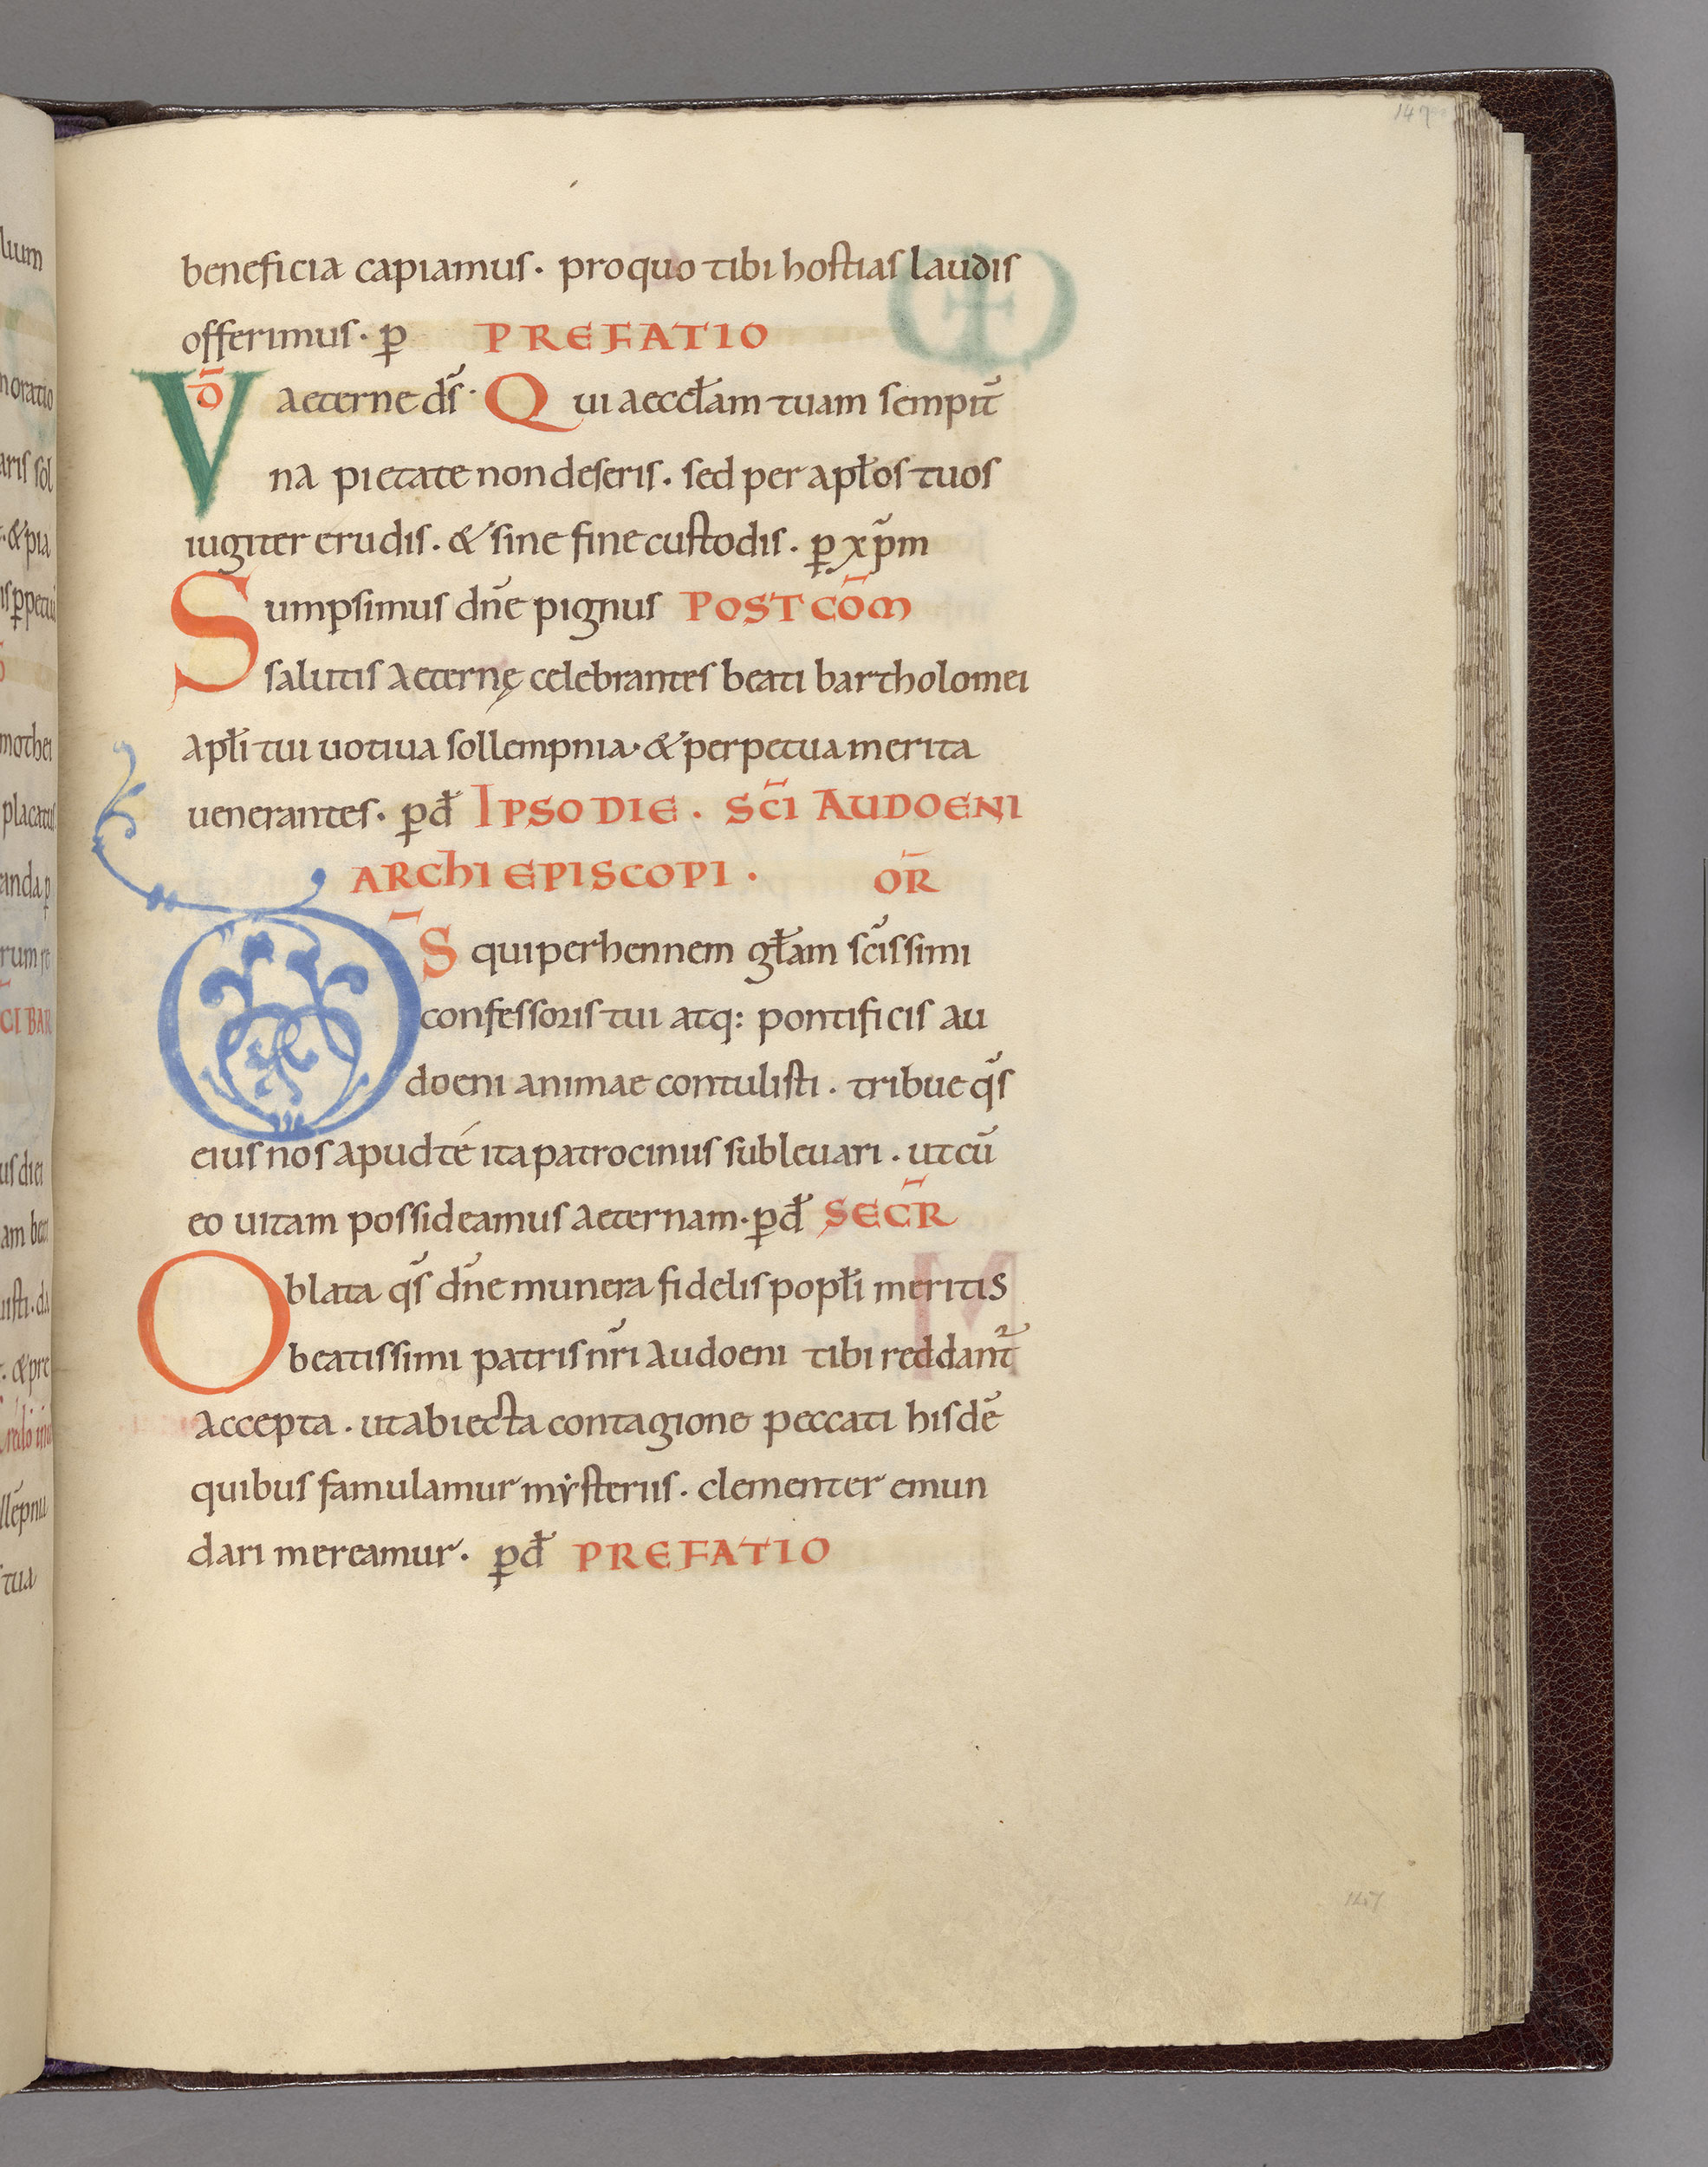 147
beneficia capiamus. pro quo tibi hostias laudis
offerimus. p̱ PREFATIO
VD̄ aeterne d̄s. Qui aecclam tuam sempit̄
na pietate non deseris. sed per aplos tuos
iugiter erudis. & sine fine custodis. p̱ xp̄m
Sumpsimus dn̄e pignus POST COM̄
salutis aeternę celebrantes beati bartholomei
apłi tui uotiua sollempnia. & perpetua merita
uenerantes. p̱đ IPSO DIE. SC̄I AUDOENI
ARCHIEPISCOPI. OR̄
D̄S qui perhennem głam sc̄issimi
confessoris tui atq: pontificis au
doeni animae contulisti. tribue q̄s
eius nos apud té ita patrociniis subleuari. ut cū
eo uitam possideamus aeternam. p̱đ SECR̄
Oblata q̄s dn̄e munera fidelis popłi meritis
beatissimi patris nr̄i audoeni tibi reddant᷑
accepta. ut abiecta contagione peccati hisdē
quibus famulamur mẏsteriis. clementer emun
dari mereamur. p̱đ PREFATIO
147